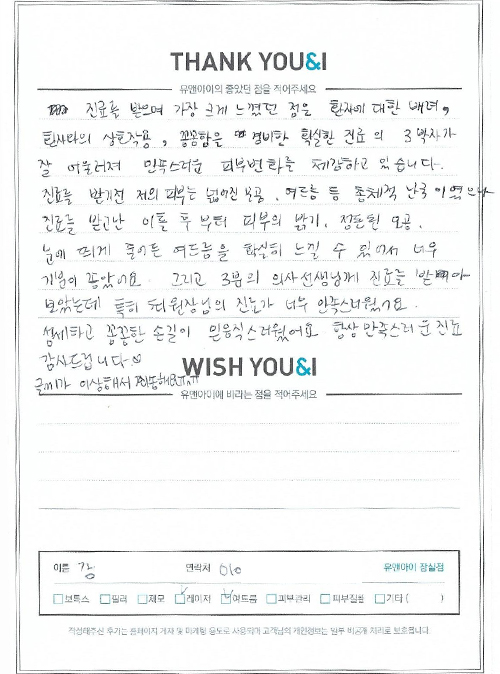 THANK YOU&I
유앤아이의 좋았던 점을 적어주세요
진료를 받으며 가장 크게 느꼈던 점은 환자에 대한 배려,
환자와의 상호작용, 꼼꼼함을 겸비한 확실한 진료의 3박자가
잘 어우러져 만족스러운 피부변화를 체감하고 있습니다.
진료를 받기전 저의 피부는 넓어진 모공, 여드름 등 총체적 난국이였으나
진료를 받고난 이틀 후부터 피부의 밝기, 정돈된 모공,
눈에 띄게 줄어든 여드름을 확실히 느낄 수 있어서 너무
기분이 좋았어요. 그리고 3분의 의사선생님께 진료를 받아
보았는데 특히 원장님의 진료가 너무 만족스러웠어요.
섬세하고 꼼꼼한 손길이 믿음직스러웠어요 항상 만족스러운 진료
감사드립니다♡
글씨가 이상해서 죄송해요ㅠㅠ
WISH YOU&I
유앤아이에 바라는 점을 적어주세요
이름 강 연락처 010 유앤아이 잠실점
보톡스 필러 제모 레이저 여드름 피부관리 피부질환 기타 ( )
작성해주신 후기는 홈페이지 게재 및 마케팅 용도로 사용되며 고객님의 개인정보는 일부 비공개 처리로 보호됩니다.